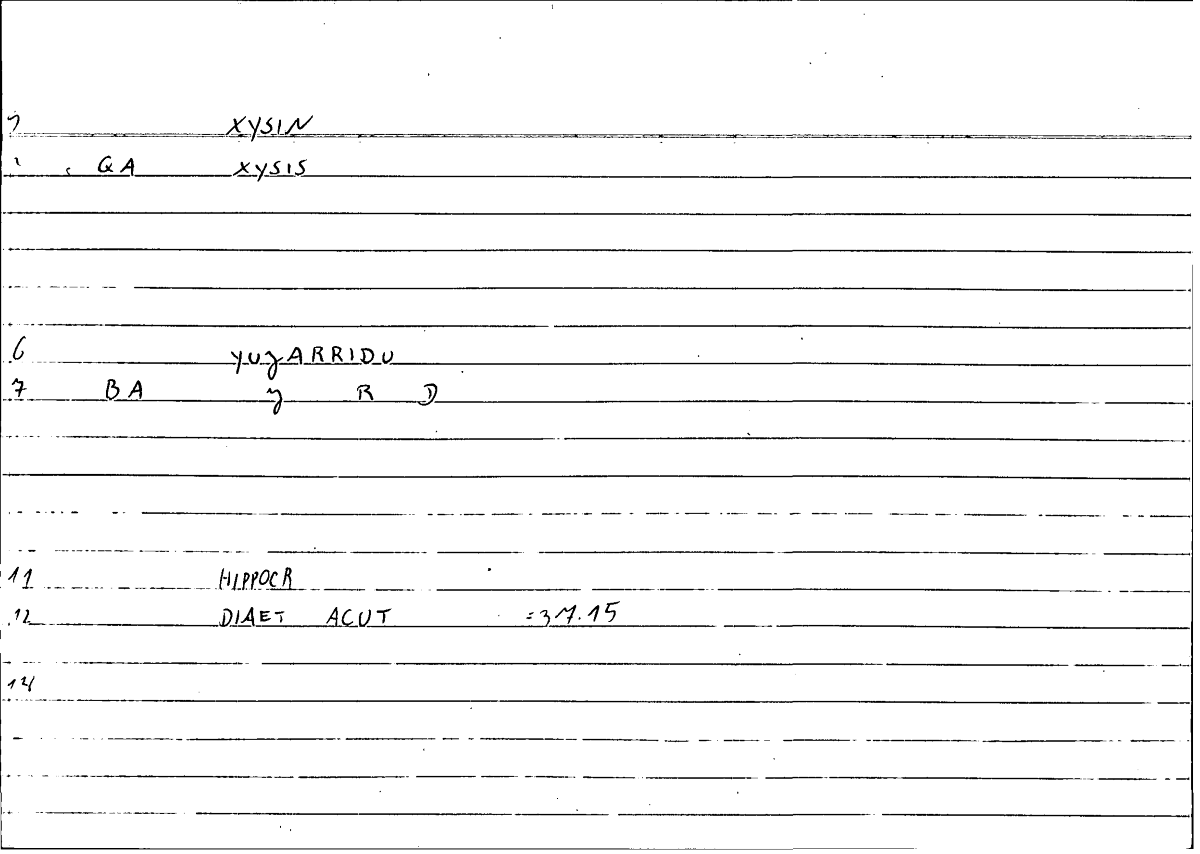 XYSIN
QA XYSIS
6 yuȝARRIDU
7 BA ȝ R D
11 HIPPOCR
12 DIAET ACUT
14